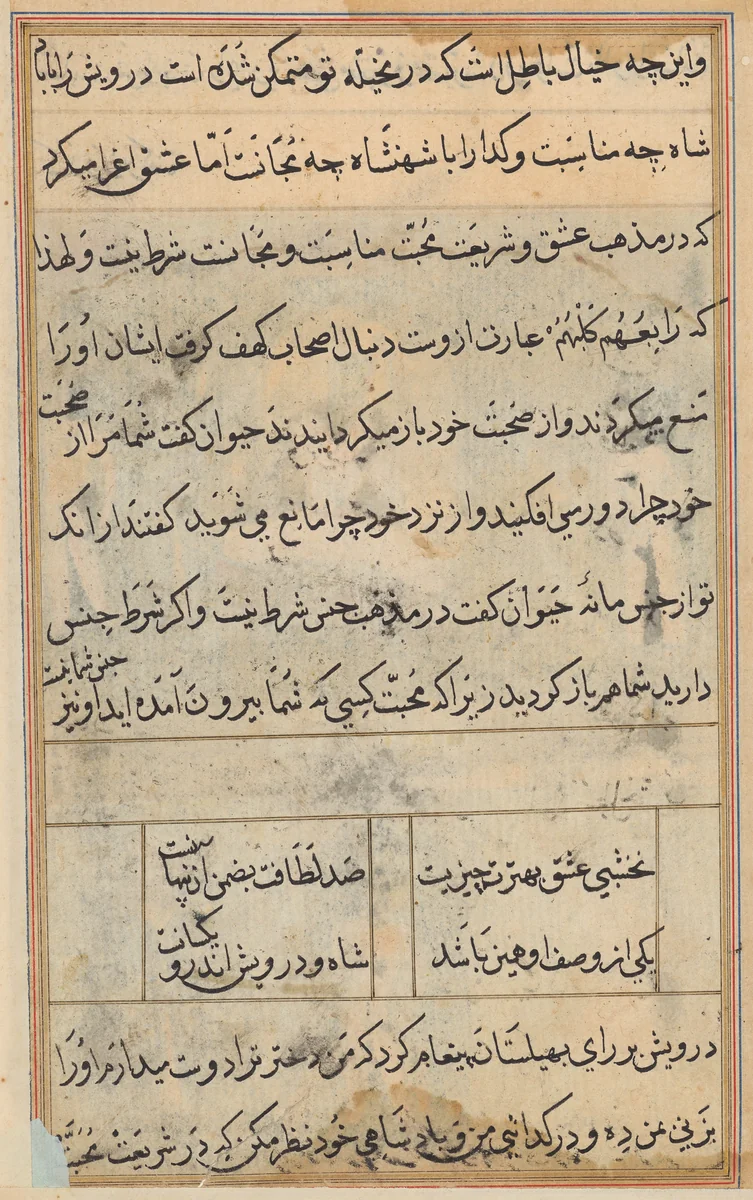 واین چه خیال باطل است که در مخیّله تو متمکن شده است درویش را با باد
شاه چه مناسبت و کدا را با شهنشاه چه مجانست امّا عشق اغرا میکرد
که در مذهب عشق و شریعت محبّت مناسبت و مجانست شرط نیست و لهذا
که رابعهم کلبهم عبارت ازوست دنبال اصحاب کهف کرفت ایشان اورا
منع میکردند و از صحبت خود باز میکردایندند حیوان کفت شما مرا از صحبت
خود چرا دور می افکنید و از نزد خود چرا مانع می شوید کفتند از انک
تو از جنس مانهٔ حیوان کفت در مذهب جنس شرط نیست و اکر شرط جنس
دارید شما هم باز کردید زیرا که محبّت کسی که شما بیرون آمده اید او نیز جنس شما نیست
نخشبی عشق بهترت چیزیست
صد لطافت بضمن ازینهاست
یکی از وصف او همین باشد
شاه و درویش اندرو یکسانست
درویش بر رای بهیلستان پیغام کرد که من دختر ترا دوست میدارم اورا
بزنی بمن ده و در کدائی من و بادشاهی خود نظر مکن که در شریعت محبّت